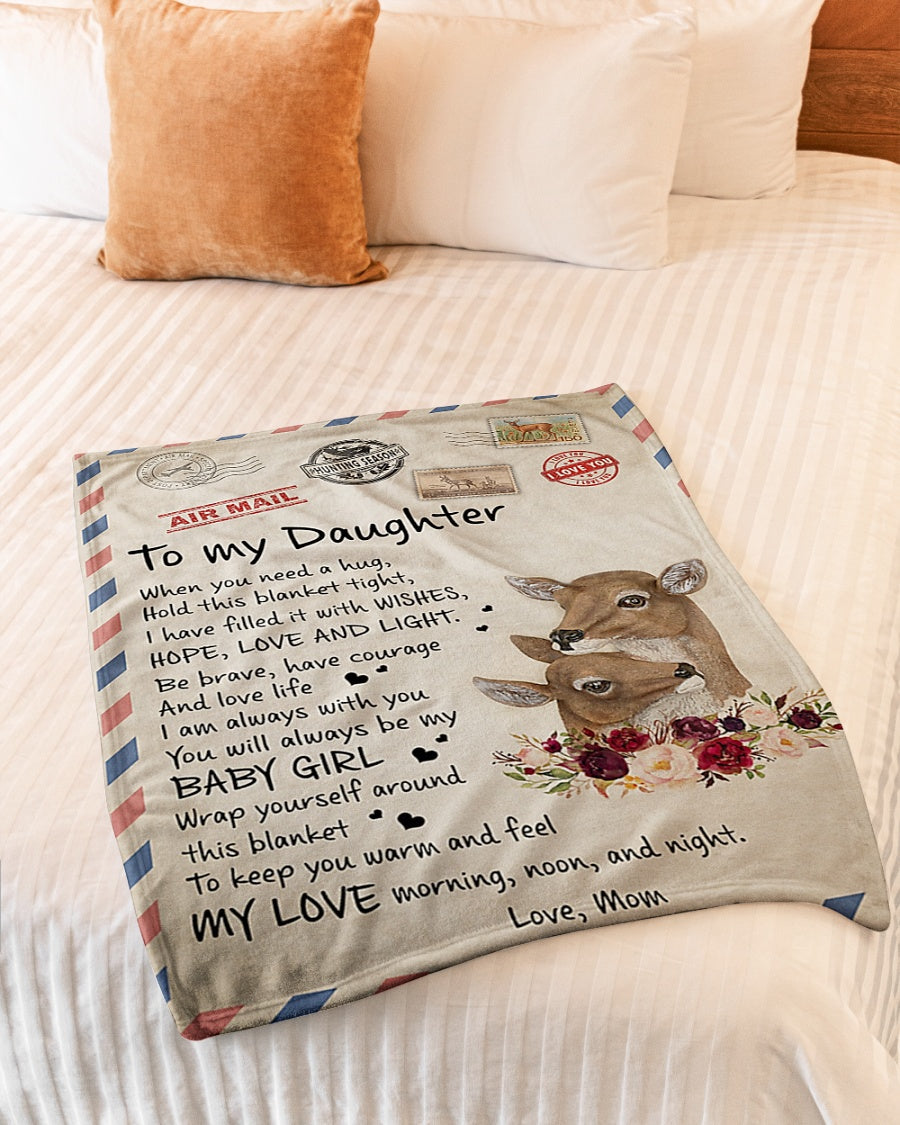 HUNTING SEASON
150
I LOVE YOU
I LOVE YOU
AIR MAIL
To my Daughter
When you need a hug,
Hold this blanket tight,
I have filled it with WISHES,
HOPE, LOVE AND LIGHT.
Be brave, have courage
And love life
I am always with you
You will always be my
BABY GIRL
Wrap yourself around
this blanket
To keep you warm and feel
MY LOVE morning, noon, and night.
Love, Mom